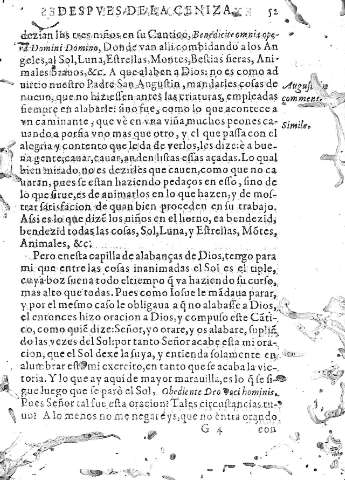 DESPVES DE LA CENIZA. 52
dezian los tres niños en su Cantico, Benedicite omnia ope-
ra Domini Domino, Donde van alli combidando a los An
geles, al Sol, Luna, Estrellas, Montes, Bestias fieras, Ani
males brauos, &c. A que alaben a Dios: no es como ad
uirtio nuestro Padre San Augustin, mandarles cosas de
nueuo, que no hiziessen antes las criaturas, empleadas
siempre en alabarle: sino fue, como lo que acontece a
vn caminante, que vè en vna viña muchos peones ca-
uando a porfia vno mas que otro, y el que passa con el
alegria y contento que le da de verlos, les dize: è a bue
na gente, cauar, cauar, anden listas essas açadas. Lo qual
bien mirado, no es dezirles que cauen, como que no ca
uaràn, pues se estan haziendo pedaços en esso, sino de
lo que sirue, es de animarlos en lo que hazen, y de mos-
trar satisfacion de quan bien proceden en su trabajo.
Assi es lo que dizē los niños en el horno, ea bendezid,
bendezid todas las cosas, Sol, Luna, y Estrellas, Mōtes,
Animales, &c.
Augusti
comment.
Simile.
Pero en esta capilla de alabanças de Dios, tengo para
mi que entre las cosas inanimadas el Sol es el tiple,
cuya boz suena todo el tiempo q̃ va haziendo su curso,
mas alto que todas. Pues como Iosue le mādaua parar,
y por el mesmo caso le obligaua a q̃ no alabasse a Dios,
el entonces hizo oracion a Dios, y compuso este Cāti-
co, como quiē dize: Señor, yo orare, y os alabare, supliē
do las vezes del Sol: por tanto Señor acabe esta mi ora-
cion, que el Sol dexe la suya, y entienda solamente en
alumbrar este mi exercito, en tanto que se acaba la vic-
toria. Y lo que ay aqui de mayor marauilla, es lo q̃ se si-
gue luego que se parò el Sol, Obediente Deo voci hominis.
Pues Señor tal fue esta oracion? Tales circunstancias tu-
uo? A lo menos no me negareys, que no entra orando
G 4 con